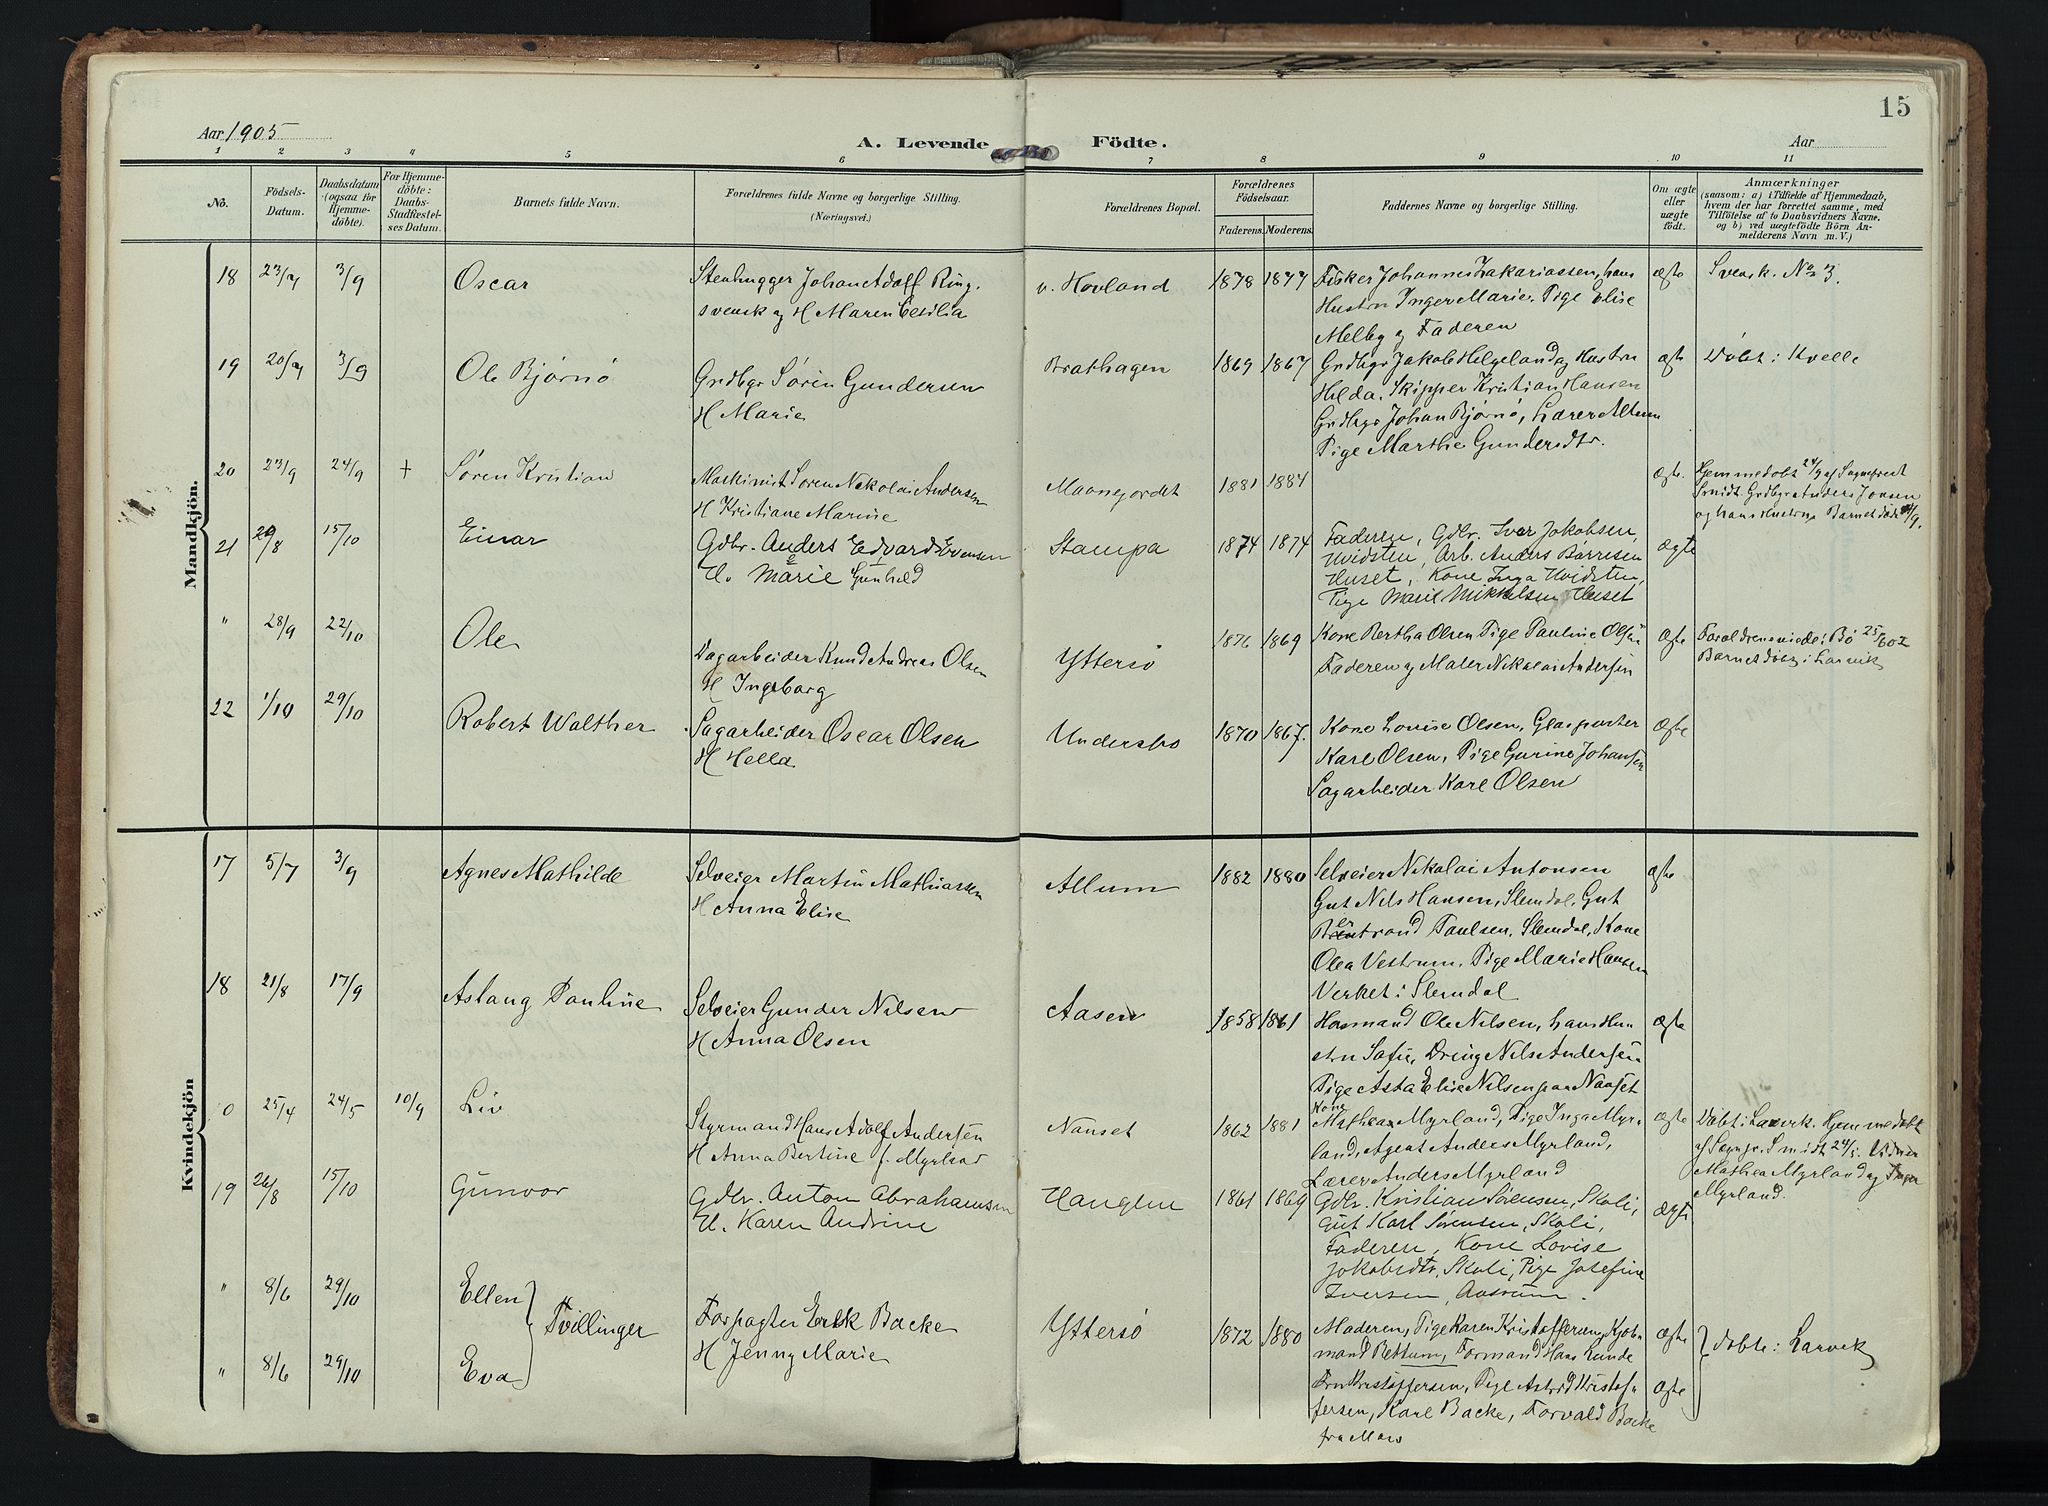 15
Aar 1905
A. Levende Födte.
Aar
1 2 3 4 5 6 7 8 9 10 11
No.
Födsels-Datum.
Daabsdatum (ogsaa for Hjemme-döbte).
For Hjemme-döbte: Daabs-Stadfæstel-ses Datum.
Barnets fulde Navn.
Forældrenes fulde Navne og borgerlige Stilling.
(Næringsvei.)
Forældrenes Bopæl.
Forældrenes Födselsaar.
Faderens. Moderens.
Faddernes Navne og borgerlige Stilling.
Om ægte eller uægte födt.
Anmærkninger
(saasom: a) i Tilfælde af Hjemmedaab,
hvem der har forrettet samme, med
Tilföielse af to Daabsvidners Navne,
og b) ved uægtefödte Börn An-
melderens Navn m. V.)
Mandkjön.
18 23/7 3/9 Oscar
Stenhugger Johan Adolf Ring,
svensk og H Maren Cecilia
v. Hovland 1878 1877
Fisker Johannes Zakariassen, hans
Hustru Inger Marie. Pige Elise
Melby og Faderen
ægte
Svensk. No 3.
19 20/7 3/9 Ole Bjørnø
Grdbgr Søren Gundersen
H Marie
Brathagen 1869 1867
Grdbgr Jakob Helgeland og Hustru
Hilda. Skipper Kristian Hansen
Grdbgr Johan Bjørnø, Lærer Allum
Pige Marthe Gundersdtr.
ægte
Døbt i Kvelle
20 23/9 24/9 + Søren Kristian
Maskinist Søren Nikolai Andersen
H Kristiane Marine
Maanejordet 1881 1884
ægte.
Hjemmedøbt 24/9 af Sogneprest
Smidt. Grdbgr Anders Jonsen
og hans Hustru. Barnet døde /9.
21 29/8 15/10 Einar
Gdbr. Anders Edvard Evensen
H. Marie Gunhild
Stampa 1874 1874
Faderen, Gdbr. Iver Jakobsen,
Hvidsten, Arb. Anders Børresen
Huset, Kone Inga Hvidsten,
Pige Marie Mikkelsen Huset
ægte
" 28/9 22/10 Ole
Dagarbeider Knud Andreas Olsen
H Ingeborg
Yttersø 1876 1869
Kone Bertha Olsen Pige Pauline Olsen
Faderen og Maler Nikolai Andersen
ægte
Forældrene viede i Bø 25/6 02
Barnet døbt i Larvik
22 1/10 29/10 Robert Walther
Sagarbeider Oscar Olsen
H Hella
Undersbo 1870 1867.
Kone Louise Olsen, Glaspuster
Karl Olsen, Pige Gurine Johansen
Sagarbeider Karl Olsen
ægte
Kvindekjön
17 5/7 3/9 Agnes Mathilde
Selveier Martin Mathiassen
H Anna Elise
Allum 1882 1880
Selveier Nikolai Antonsen
Gut Nils Hansen, Slemdal, Gut
Bertrand Paulsen, Slemdal, Kone
Olea Vestrum, Pige Marie Hansen
Verket i Slemdal
ægte
18 21/8 17/9 Aslaug Pauline
Selveier Gunder Nilsen
H Anna Olsen
Aasen 1858 1861
Husmand Ole Nilsen, hans Hu-
stru Sofie, Dreng Nils Andersen
Pige Asta Elise Nilsen paa Nanset
ægte
0 25/4 24/5 10/9 Liv
Styrmand Hans Adolf Andersen
H Anna Bertine f. Myrland
Nanset 1862 1881
Kone
Mathea Myrland, Pige Inga Myr-
land, Agent Anders Myrland,
Lærer Anders Myrland
ægte
Døbt i Larvik. Hjemmedøbt
af Sognepr. Smidt 24/5. Vidner
Mathea Myrland og Inga
Myrland.
19 26/8 15/10 Gunvor
Gdbr. Anton Abrahamsen
H. Karen Andrine
Hanglen 1861 1869
Gdbr. Kristian Sørensen, Skoli,
Gut Karl Sørensen, Skoli,
Faderen, Kone Lovise
Jakobsdtr. Skoli, Pige Josefine
Iversen,
ægte
" 8/6 29/10 Ellen
" 8/6 29/10 Eva
Tvillinger
Forpagter Erik Backe
H Jenny Marie
Yttersø 1872 1880
Moderen, Pige Karen Kristoffersen, Kjøb-
mand Rettum, Formand Hans Lunde
Fru Kristoffersen, Pige Astrid Kristof-
fersen, Karl Backe, Torvald Backe
fra Moss
ægte
ægte
døbte i Larvik